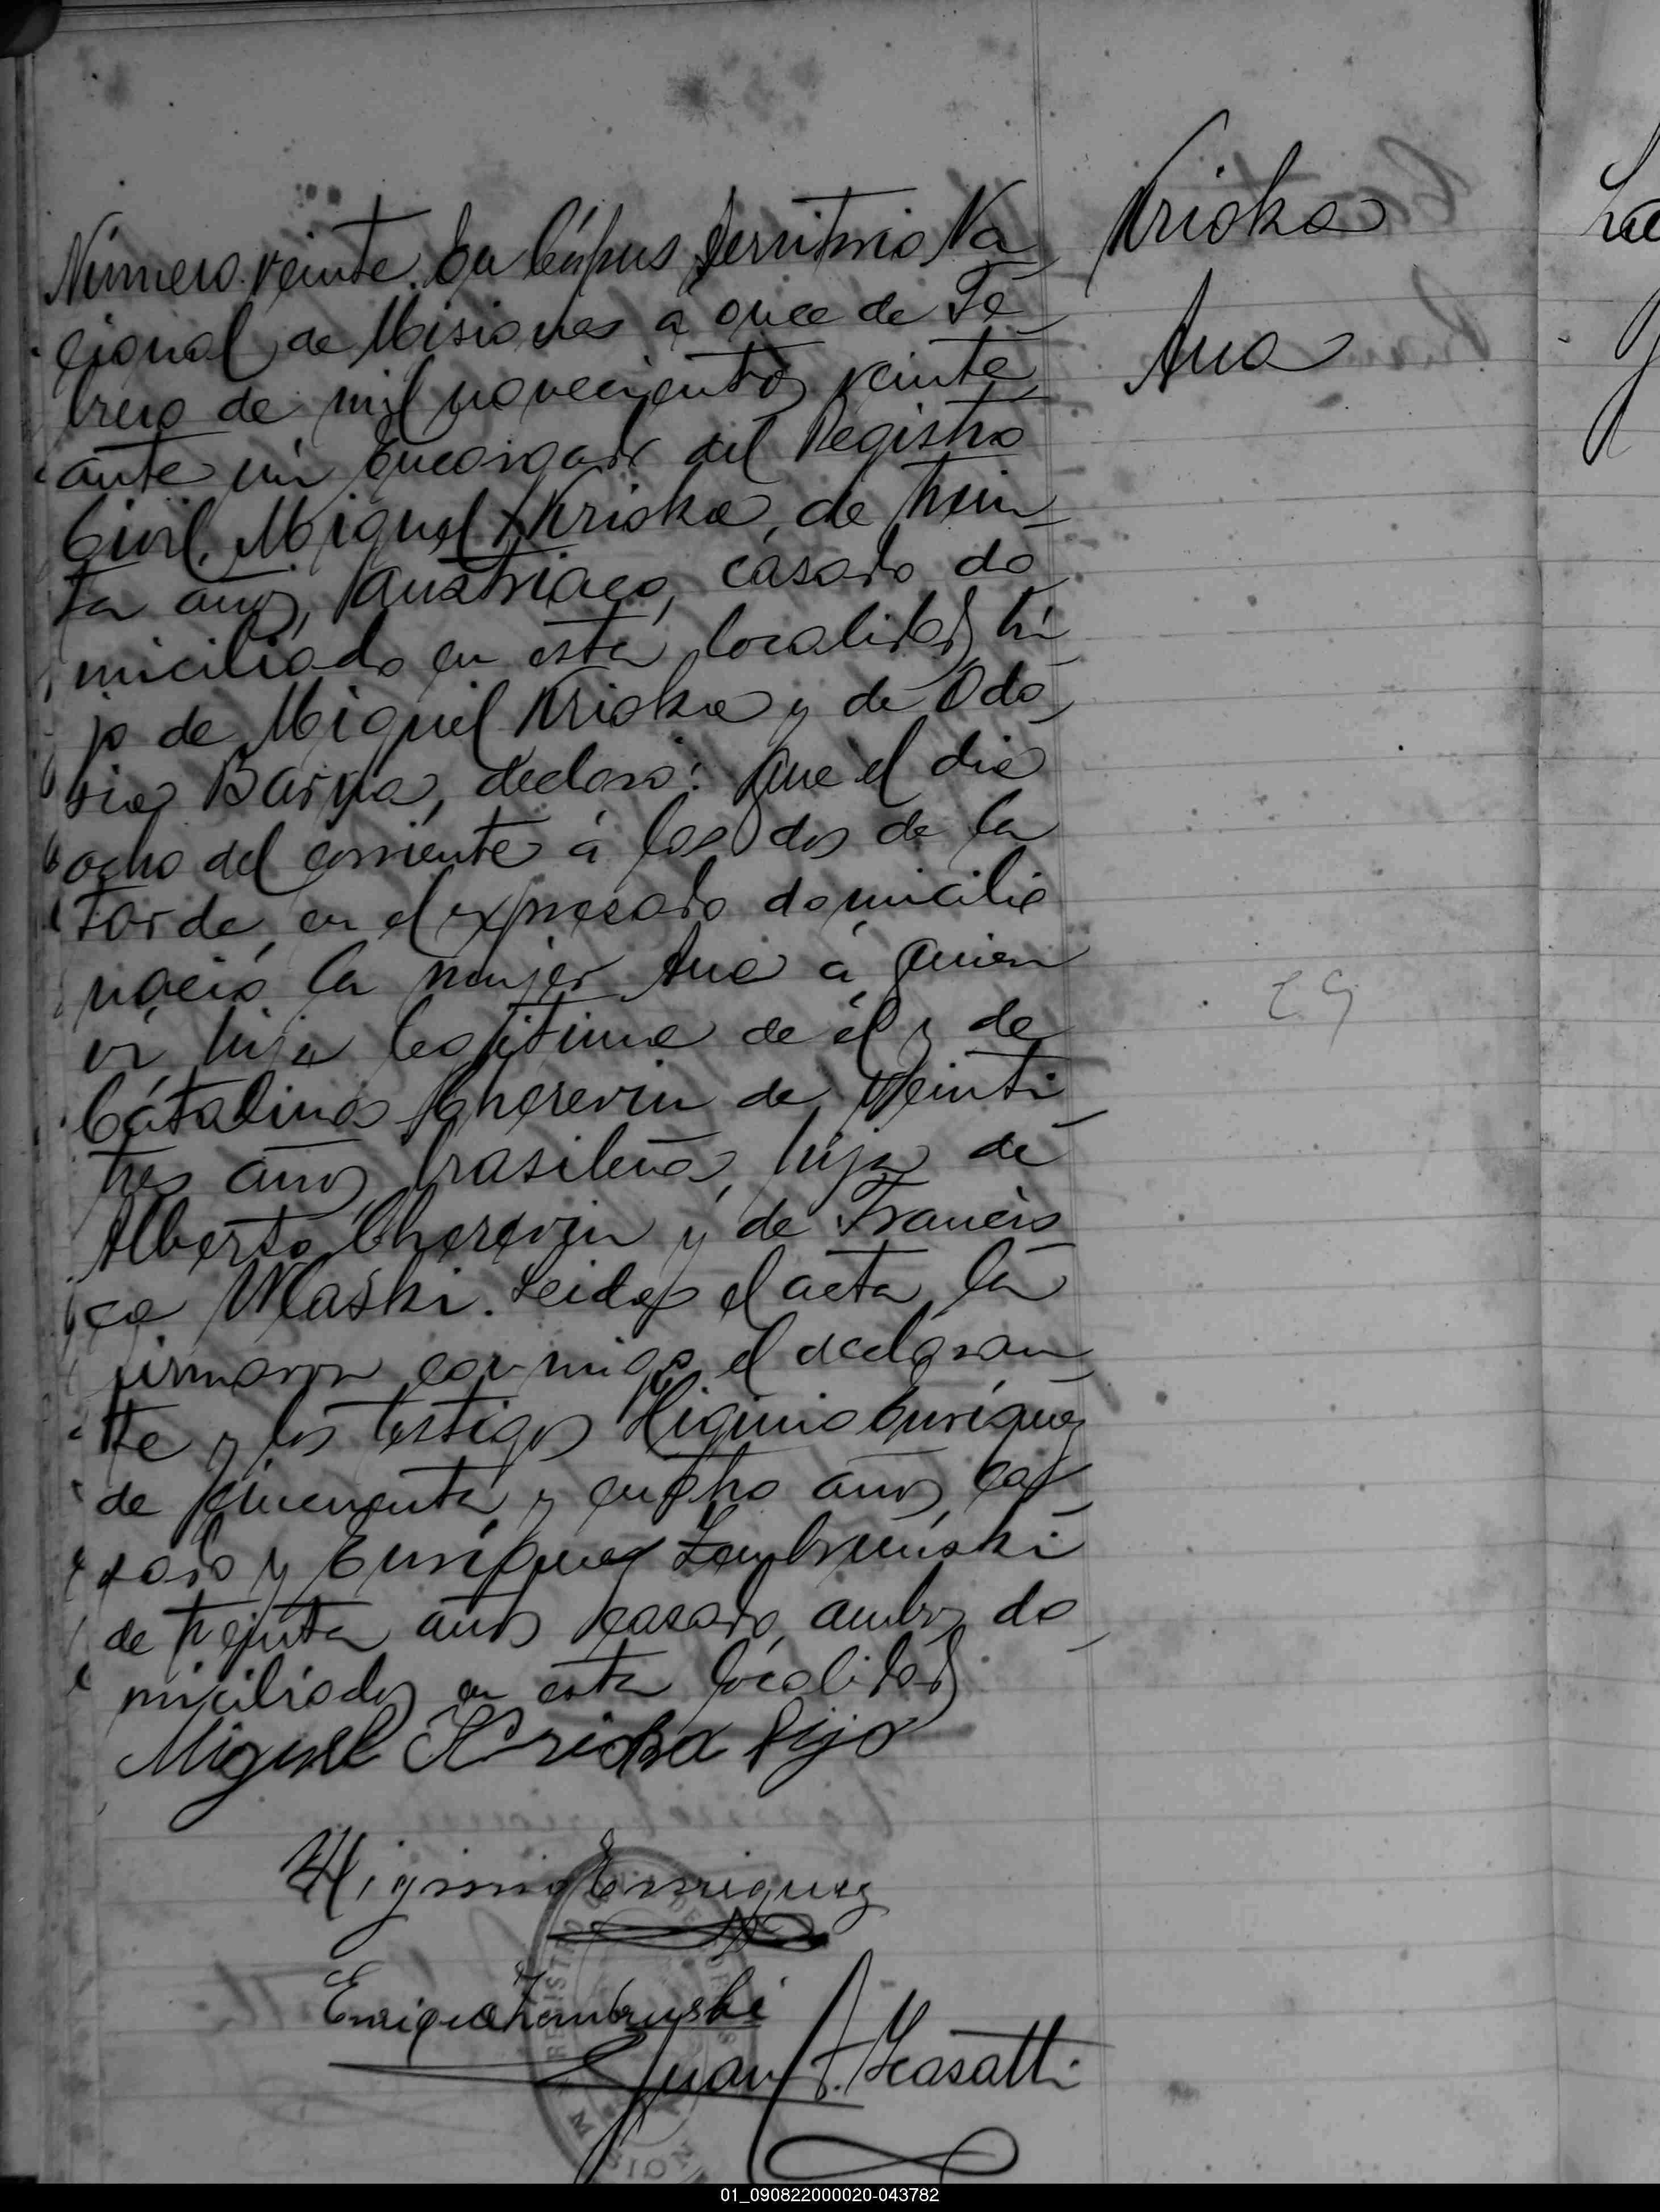 Kriska
Ana
Número veinte. En Córpus Territorio Na
cional de Misiones á once de Fe
brero de mil novecientos veinte
ante mí Encargado del Registro
Civil, Miguel Kriska, de trein
ta años, austriaco, casado do
miciliado en esta localidad, hi
jo de Miguel Kriska y de Odo
sia Barna, declaró: Que el dia
ocho del corriente á las dos de la
tarde, en el expresado domicilio
nació la mujer Ana á quien
ví, hija legitima de él y de
Catalina Cherevin de veinti
tres años, brasileña, hija de
Alberto Cherevin y de Francis
ca Wlaski. Leida el acta, la
firmaron conmigo el declaran
te y los testigos Higinio Enriquez
de cincuenta y ocho años, ca
sado y Enrique Zembruski
de treinta años casado, ambos do
miciliados en esta localidad
Miguel Kriska hijo
Higinio Enriquez
Enrique Zembruski
Juan F. Casatti
29
01_090822000020-043782